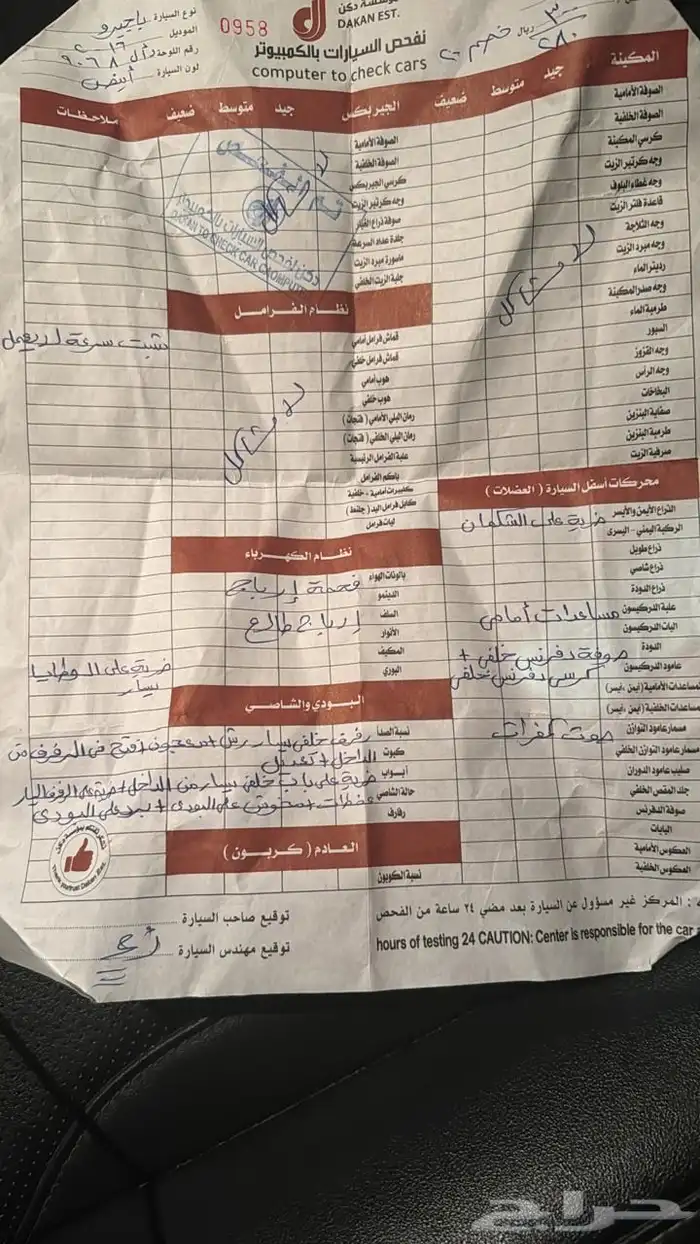 مؤسسة دكن
DAKAN EST.
نفحص السيارات بالكمبيوتر
computer to check cars
0958
نوع السيارة باجيرو
الموديل ٢٠١٦
رقم اللوحة
لون السيارة أبيض
٣٠٠ ريال
خصم ٢٠
٢٨٠
المكينة جيد متوسط ضعيف
الصوفة الأمامية
الصوفة الخلفية
كرسي المكينة
وجه كرتير الزيت
وجه غطاء البلوف
قاعدة فلتر الزيت
وجه الثلاجة
وجه مبرد الزيت
رديتر الماء
وجه صدر المكينة
طرمبة الماء
السيور
وجه القزوز
وجه الرأس
البخاخات
صفاية البنزين
طرمبة البنزين
صرفية الزيت
لا مشاكل
محركات أسفل السيارة ( العضلات )
الذراع الأيمن والأيسر
ضربة على الشكمان
الركبة اليمنى - اليسرى
ذراع طويل
ذراع شاصي
ذراع الدودة
علبة الدركيسون
مساعدات أمامي
اليات الدركيسون
الدودة
صوفة دفرنس خلفي +
عامود الدركيسون
كرسي دفرنس خلفي
مساعدات الأمامية (يمن ، يسر)
مساعدات الخلفية (يمن ، يسر)
مسمار عامود التوازن
صوت كفرات
مسمار عامود التوازن الخلفي
صليب عامود الدوران
جلد المقص الخلفي
صوفة الدفرنس
اليايات
المكوس الأمامية
المكوس الخلفية
الجيربكس جيد متوسط ضعيف ملاحظات
الصوفة الأمامية
الصوفة الخلفية
كرسي الجيربكس
وجه كرتير الزيت
صوفة ذراع الغيار
جلدة عداد السرعة
ماسورة مبرد الزيت
جلبة الزيت الخلفي
لا مشاكل
دكن لفحص السيارات بالكمبيوتر
DAKAN TO CHECK CAR COMPUTER
نظام الفرامل
قماش فرامل أمامي
مثبت سرعة لا يعمل
قماش فرامل خلفي
هوب أمامي
هوب خلفي
رمان البلي الأمامي ( فتحات )
رمان البلي الخلفي ( فتحات )
علبة الفرامل الرئيسية
باكم الفرامل
كليبرات أمامية - خلفية
كابل فرامل اليد ( جلنط )
ليات فرامل
لا مشاكل
نظام الكهرباء
بالونات الهواء
فحمة إرباج
الدينمو
السلف
إرباج طالع
الأنوار
المكيف
البوري
ضربة على الوطايا
يسار
البودي والشاصي
نسبة الصدأ
كبوت
أبواب
حالة الشاصي
رفارف
رفرف خلفي يسار رش + معجون + فتح في الرفرف من
الداخل + تعديل
ضربة على باب خلفي يسار من الداخل +
العادم ( كربون )
نسبة الكربون
توقيع صاحب السيارة
توقيع مهندس السيارة
: المركز غير مسؤول عن السيارة بعد مضي ٢٤ ساعة من الفحص
hours of testing 24 CAUTION: Center is responsible for the car
حراج